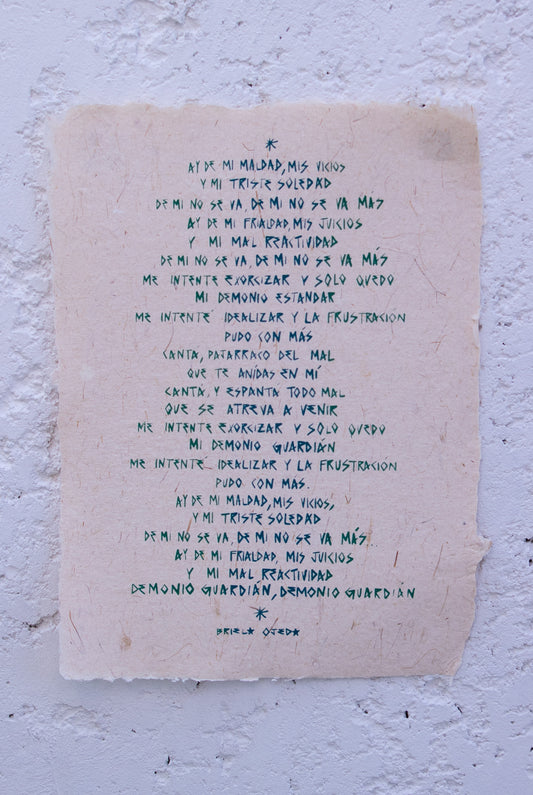 *
AY DE MI MALDAD, MIS VICIOS
Y MI TRISTE SOLEDAD
DE MI NO SE VA, DE MI NO SE VA MÁS
AY DE MI FRIALDAD, MIS JUICIOS
Y MI MAL REACTIVIDAD
DE MI NO SE VA, DE MI NO SE VA MÁS
ME INTENTÉ EXORCIZAR Y SOLO QUEDO
MI DEMONIO ESTANDAR
ME INTENTÉ IDEALIZAR Y LA FRUSTRACIÓN
PUDO CON MÁS
CANTA, PAJARRACO DEL MAL
QUE TE ANIDAS EN MÍ
CANTA, Y ESPANTA TODO MAL
QUE SE ATREVA A VENIR
ME INTENTE EXORCIZAR Y SOLO QUEDO
MI DEMONIO GUARDIÁN
ME INTENTÉ IDEALIZAR Y LA FRUSTRACION
PUDO CON MAS.
AY DE MI MALDAD, MIS VICIOS,
Y MI TRISTE SOLEDAD
DE MI NO SE VA, DE MI NO SE VA MÁS
AY DE MI FRIALDAD, MIS JUICIOS
Y MI MAL REACTIVIDAD
DEMONIO GUARDIÁN, DEMONIO GUARDIAN
*
BRIELA OJEDA